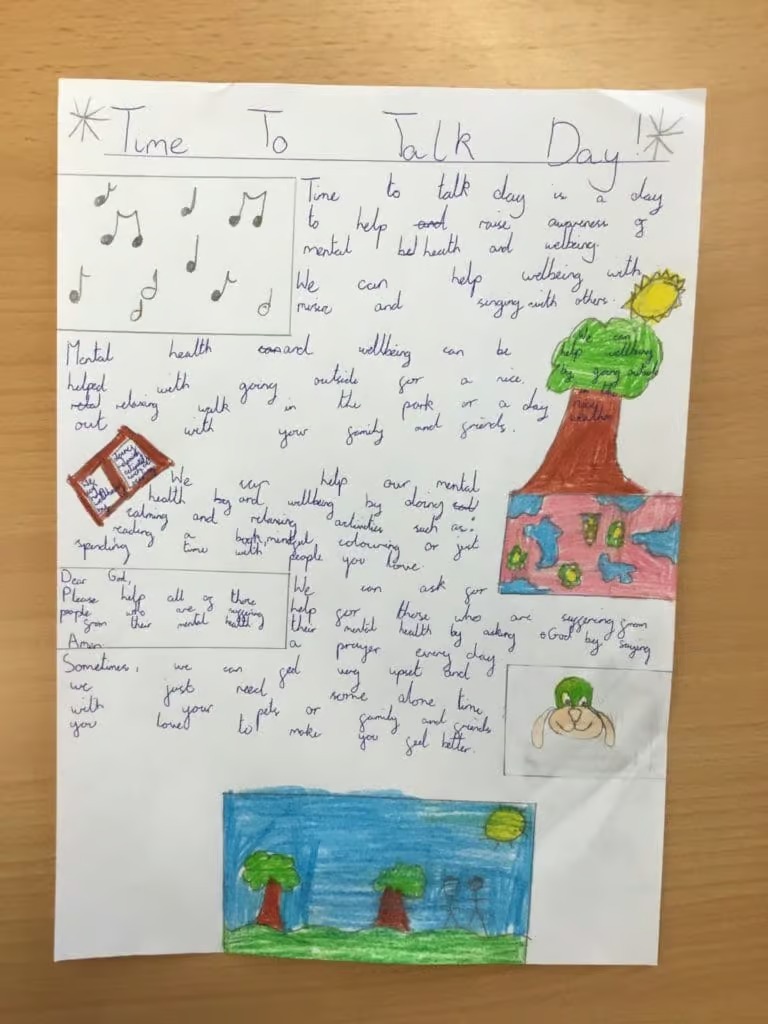 Time To Talk Day!
Time to talk day is a day
to help and raise awareness of
mental be health and welbeing.
We can help welbeing with
music and singing with others.
We can
help wellbeing
by going outside
in the
nice
weather
Mental health can and wellbeing can be
helped with going outside for a nice
relaxing walk in the park or a day
out with your family and friends.
We can help our mental
health by and wellbeing by doing
calming and relaxing activities such as:
reading a book, mindful colouring or just
spending time with people you love.
Dear God,
Please help all of those
people who are suffering
from their mental health
Amen
We can ask for
help for those who are suffering from
their mental health by asking God by saying
a prayer every day
Sometimes, we can feel very upset and
we just need some alone time
with your pets or family and friends
you loved to make you feel better.